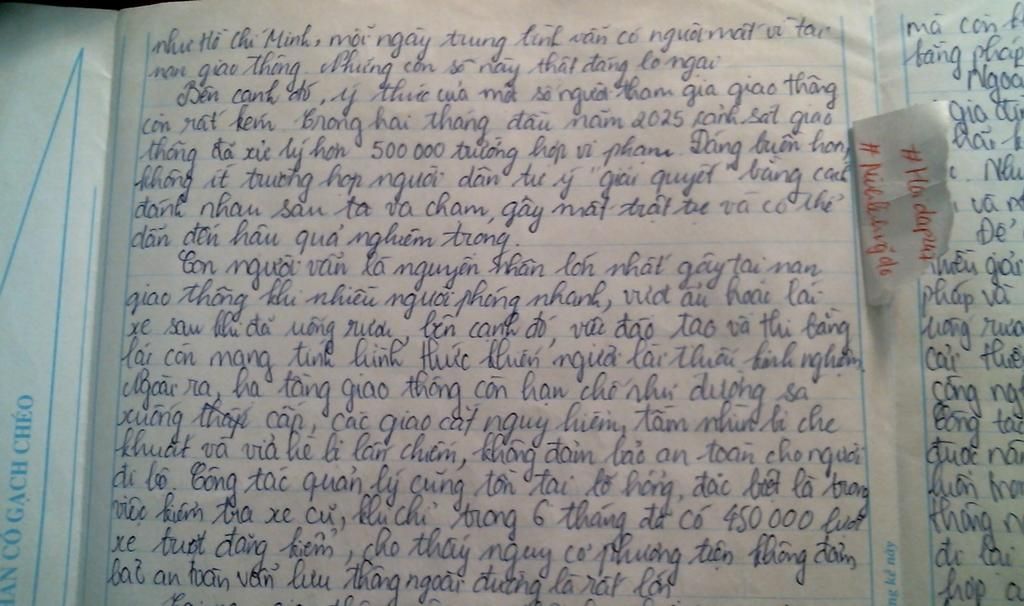 như Hồ Chí Minh, mỗi ngày trung bình vẫn có người mất vì tai
nạn giao thông. Những con số này thật đáng lo ngại
Bên cạnh đó, ý thức của một số người tham gia giao thông
còn rất kém. Trong hai tháng đầu năm 2025 cảnh sát giao
thông đã xử lý hơn 500 000 trường hợp vi phạm. Đáng buồn hơn,
không ít trường hợp người dân tự ý "giải quyết" bằng cách
đánh nhau sau va chạm, gây mất trật tự và có thể
dẫn đến hậu quả nghiêm trọng.
Con người vẫn là nguyên nhân lớn nhất gây tai nạn
giao thông khi nhiều người phóng nhanh, vượt ẩu hoặc lái
xe sau khi đã uống rượu, bên cạnh đó, việc đào tạo và thi bằng
lái còn mang tính hình thức khiến người lái thiếu kinh nghiệm.
Ngoài ra, hạ tầng giao thông còn hạn chế như đường sá
xuống cấp, các giao cắt nguy hiểm, tầm nhìn bị che
khuất và vỉa hè bị lấn chiếm, không đảm bảo an toàn cho người
đi bộ. Công tác quản lý cũng tồn tại lỗ hổng, đặc biệt là trong
việc kiểm tra xe cũ, khi chỉ trong 6 tháng đã có 450 000 lượt
xe trượt đăng kiểm, cho thấy nguy cơ phương tiện không đảm
bảo an toàn vẫn lưu thông ngoài đường là rất lớn
PHẦN CÓ GẠCH CHÉO
mà còn
bằng pháp
Ngoài
gia đìn
và
Để
nhiều giải
pháp và
uống rượu
cải thiện
công ng
Công tác
được
luôn
tháng
đi lại
hợp